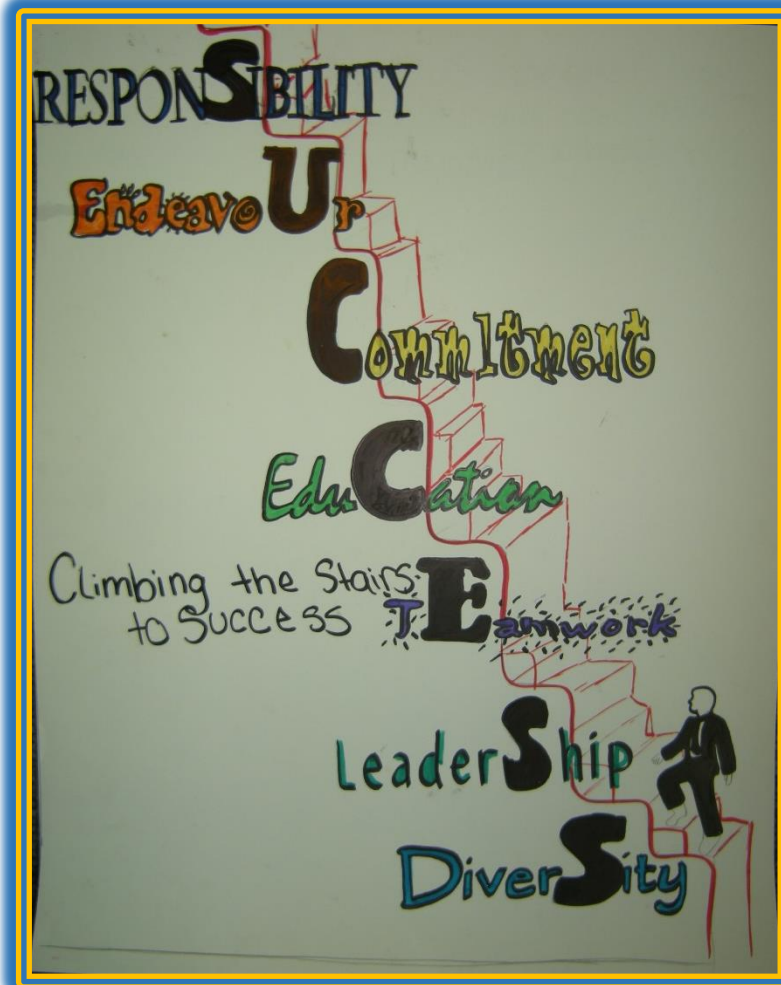 RESPONSIBILITY
EndeavoUr
CommItment
EduCation
Climbing the Stairs
to Success
TEamwork
LeaderShip
DiverSity